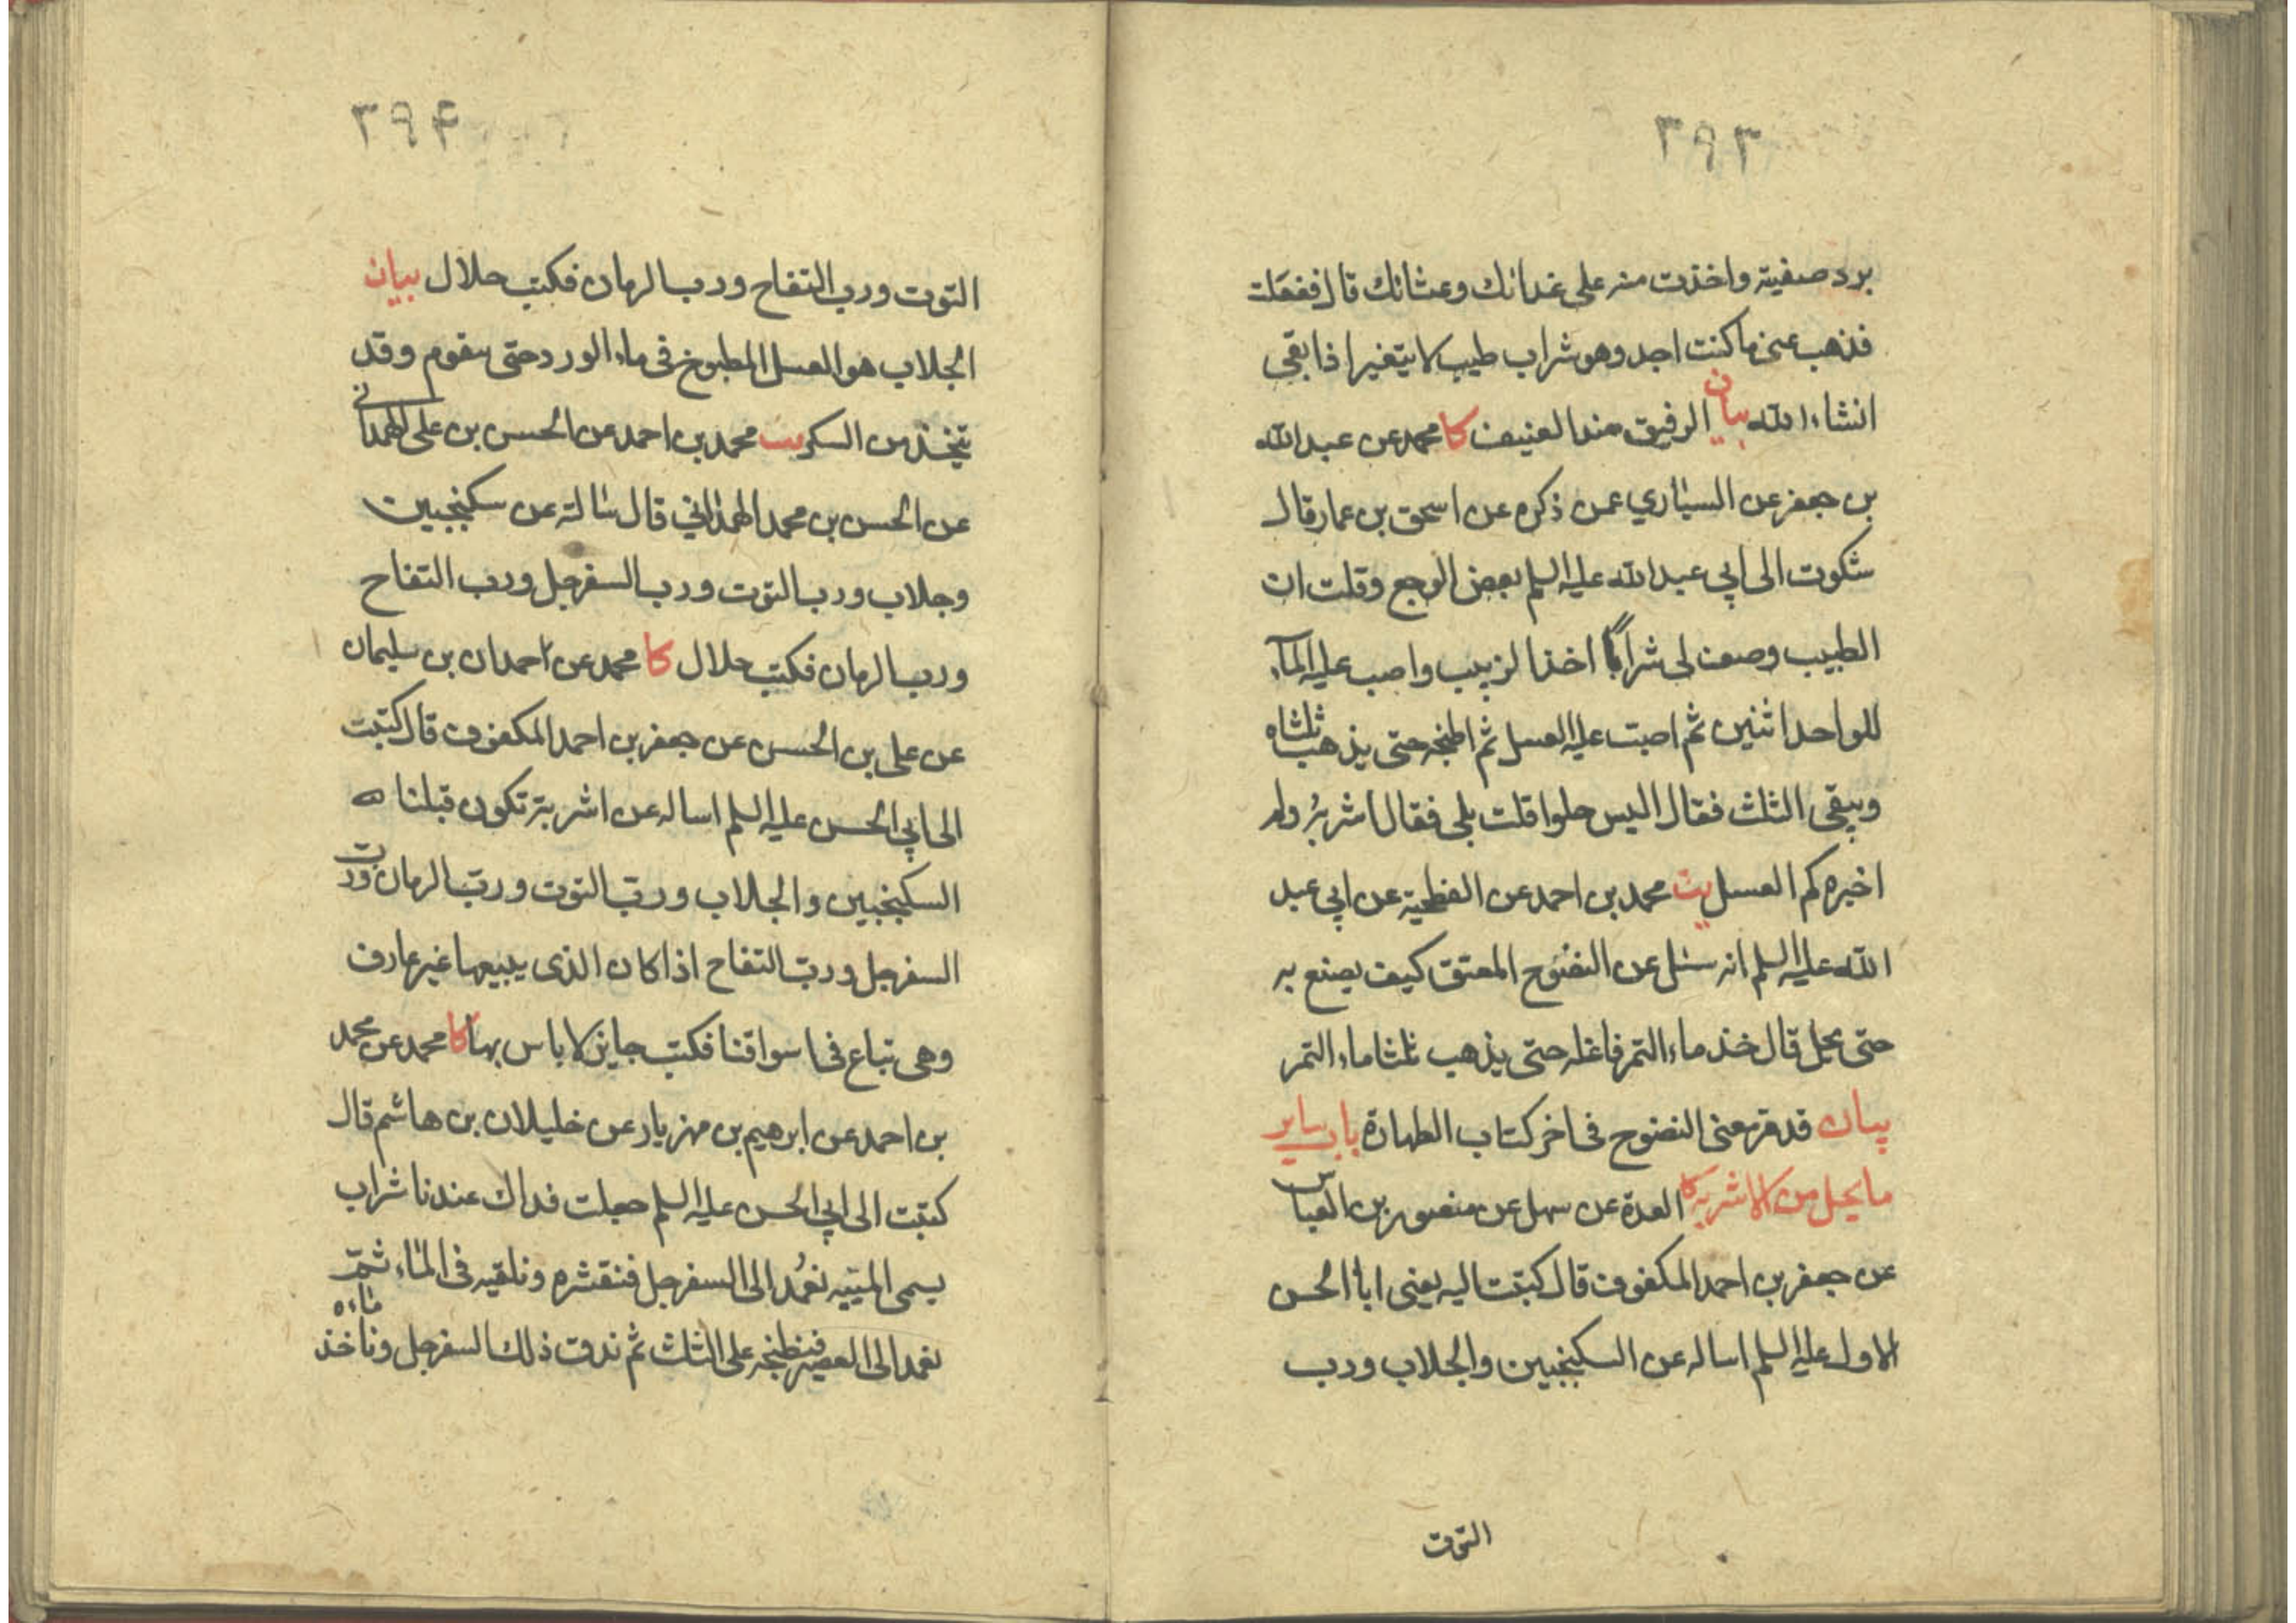 ٣٩٣
برد صفيته واخذت منه على غدائك وعشائك قال ففعلت
فذهب عنى ما كنت اجد وهو شراب طيب لا يتغير اذا بقى
انشاء الله بيان الرفيق ضد العنيف كا محمد عن عبد الله
بن جعفر عن السياري عمن ذكره عن اسحق بن عمار قال
شكوت الى ابي عبد الله عليه السلم بعض الوجع وقلت ان
الطبيب وصف لى شرابا اخذ الزبيب واصب عليه الماء
للواحد اثنين ثم اصب عليه العسل ثم اطبخه حتى يذهب ثلثاه
ويبقى الثلث فقال اليس حلوا قلت بلى فقال اشربه ولم
اخبره كم العسل يب محمد بن احمد عن الفطحية عن ابي عبد
الله عليه السلم انه سئل عن النضوح المعتق كيف يصنع به
حتى يحل قال خذ ماء التمر فاغله حتى يذهب ثلثا ماء التمر
بيان قد مر معنى النضوح فى اخر كتاب الطهارة باب ساير
ما يحل من الاشربه كا العدة عن سهل عن منصور بن العباس
عن جعفر بن احمد المكفوف قال كتبت اليه يعنى ابا الحسن
الاول عليه السلم اساله عن السكنجبين والجلاب ورب
التوت
٣٩۴
التوت ورب التفاح ورب الرمان فكتب حلال بيان
الجلاب هو العسل المطبوخ فى ماء الورد حتى يتقوم وقد
يتخذ من السكر يب محمد بن احمد عن الحسن بن على الهمدانى
عن الحسن بن محمد الهمذاني قال سالته عن سكنجبين
وجلاب ورب التوت ورب السفرجل ورب التفاح
ورب الرمان فكتب حلال كا محمد عن حمدان بن سليمان
عن على بن الحسن عن جعفر بن احمد المكفوف قال كتبت
الى ابي الحسن عليه السلم اساله عن اشربة تكون قبلنا
السكنجبين والجلاب ورب التوت ورب الرمان ورب
السفرجل ورب التفاح اذا كان الذى يبيعها غير عارف
وهى تباع فى اسواقنا فكتب جايز لا باس بها كا محمد عن محمد
بن احمد عن ابرهيم بن مهزيار عن خليلان بن هاشم قال
كتبت الى ابي الحسن عليه السلم جعلت فداك عندنا شراب
يسمى الميبه نعمد الى السفرجل فنقشره ونلقيه فى الماء ثم
نعمد الى العصير فنطبخه على الثلث ثم ندق ذلك السفرجل وناخذ ماءه